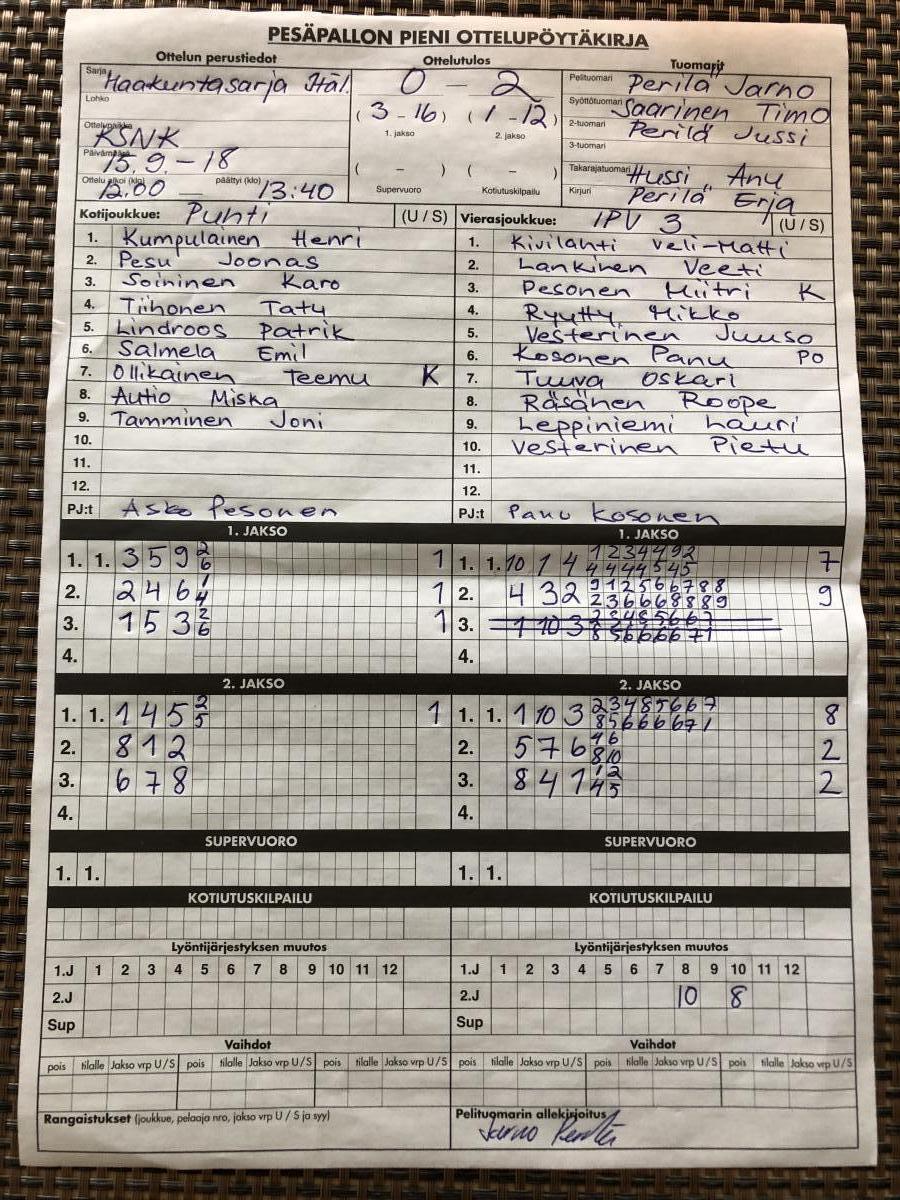 PESÄPALLON PIENI OTTELUPÖYTÄKIRJA
Ottelun perustiedot Ottelutulos Tuomarit
Sarja Maakuntasarja Itäl. 0 - 2 Pelituomari Perilä Jarno
Lohko (3 - 16) (1 - 12) Syöttötuomari Saarinen Timo
1. jakso 2. jakso 2-tuomari Perilä Jussi
Ottelupaikka KSNK 3-tuomari
Päivämäärä 15.9.-18 ( - ) ( - ) Takarajatuomari Hussi Anu
Ottelu alkoi (klo) 12.00 päättyi (klo) 13:40 Supervuoro Kotiutuskilpailu Kirjuri Perilä Erja
Kotijoukkue: Puhti (U / S) Vierasjoukkue: IPV 3 (U / S)
1. Kumpulainen Henri 1. Kivilahti Veli-Matti
2. Pesu Joonas 2. Lankinen Veeti
3. Soininen Karo 3. Pesonen Miitri K
4. Tiihonen Tatu 4. Ryutty Mikko
5. Lindroos Patrik 5. Vesterinen Juuso
6. Salmela Emil 6. Kosonen Panu PO
7. Ollikainen Teemu K 7. Tuuva Oskari
8. Autio Miska 8. Räsänen Roope
9. Tamminen Joni 9. Leppiniemi Lauri
10. 10. Vesterinen Pietu
11. 11.
12. 12.
PJ:t Asko Pesonen PJ:t Panu Kosonen
1. JAKSO 1. JAKSO
1. 1. 3 5 9 2 6 1 1. 1. 10 1 4 1 2 3 4 4 9 2 4 4 4 4 5 4 5 7
2. 2 4 6 1 4 1 2. 4 3 2 9 1 2 5 6 6 7 8 8 2 3 6 6 6 8 8 8 9 9
3. 1 5 3 2 6 1 3. 1 10 3 2 3 4 8 5 6 6 7 8 5 6 6 6 6 7 1
4. 4.
2. JAKSO 2. JAKSO
1. 1. 1 4 5 2 5 1 1. 1. 1 10 3 2 3 4 8 5 6 6 7 8 5 6 6 6 6 7 1 8
2. 8 1 2 2. 5 7 6 4 6 8 10 2
3. 6 7 8 3. 8 4 1 1 2 4 5 2
4. 4.
SUPERVUORO SUPERVUORO
1. 1. 1. 1.
KOTIUTUSKILPAILU KOTIUTUSKILPAILU
Lyöntijärjestyksen muutos Lyöntijärjestyksen muutos
1.J 1 2 3 4 5 6 7 8 9 10 11 12 1.J 1 2 3 4 5 6 7 8 9 10 11 12
2.J 2.J 10 8
Sup Sup
Vaihdot Vaihdot
pois tilalle Jakso vrp U / S pois tilalle Jakso vrp U / S pois tilalle Jakso vrp U / S pois tilalle Jakso vrp U / S pois tilalle Jakso vrp U / S pois tilalle Jakso vrp U / S
Rangaistukset (joukkue, pelaaja nro, jakso vrp U / S ja syy) Pelituomarin allekirjoitus
Jarno